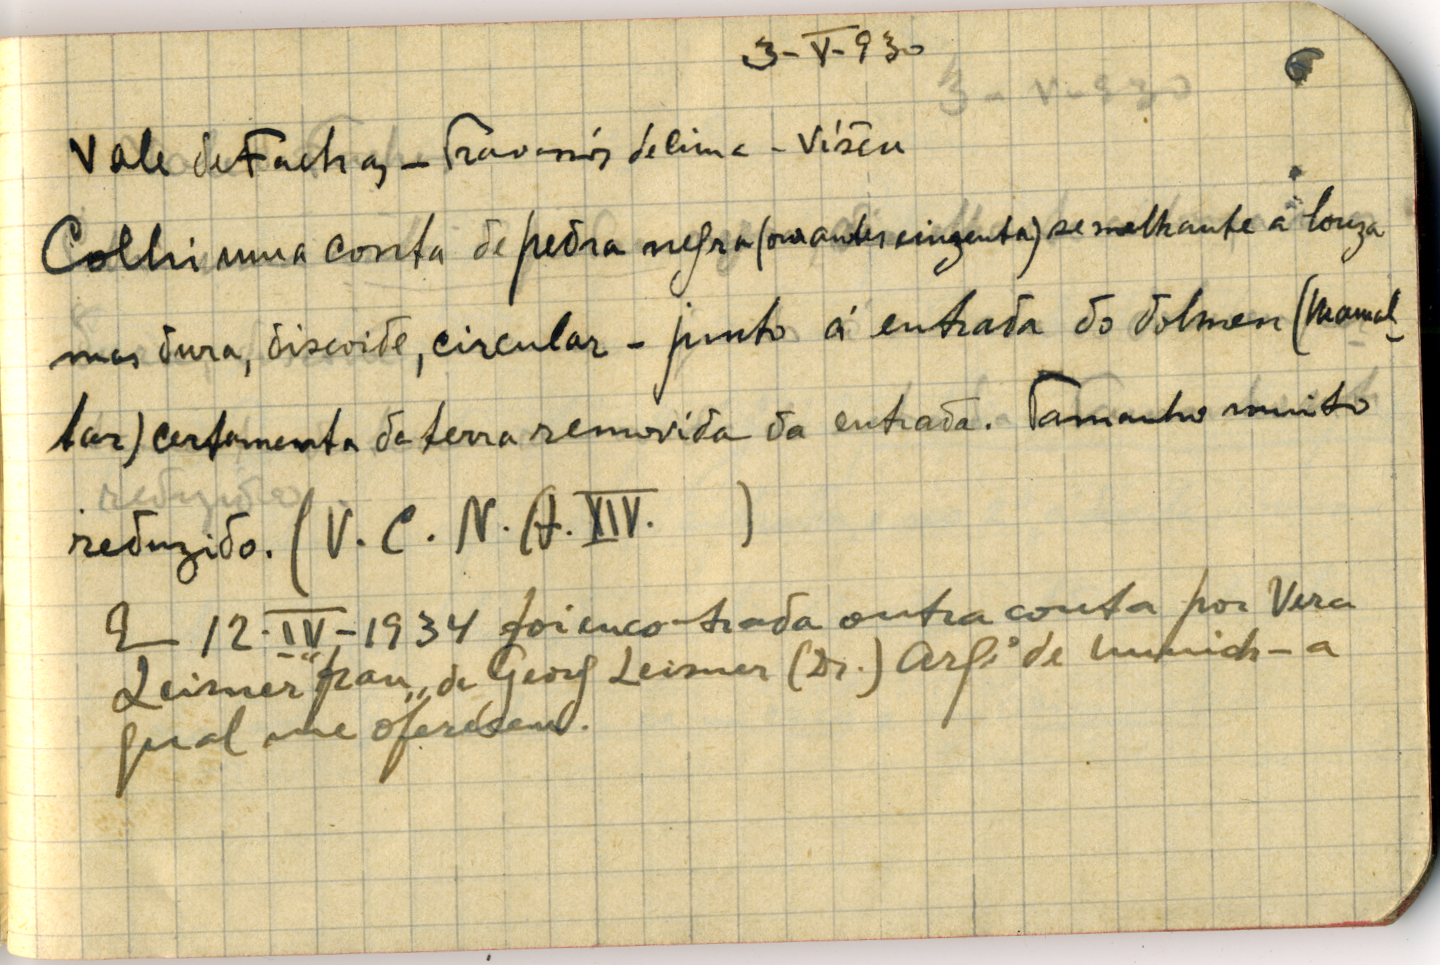 3-V-930
Vale de Fachas - Travassós de cima - Viseu
Colhi uma conta de pedra negra (ou antes cinzenta) semelhante á louza
mas dura, discoide, circular - junto á entrada do dolmen (Mamal-
tar) certamente da terra removida da entrada. Tamanho muito
reduzido. (V. C. N. A. XIV. )
Em 12-IV-1934 foi encontrada outra conta por Vera
Leisner "frau" de Georg Leisner (Dr.) Arqº de Munich - a
qual me ofereceu.